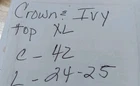 Crown & Ivy
top XL
C - 42
L - 24-25